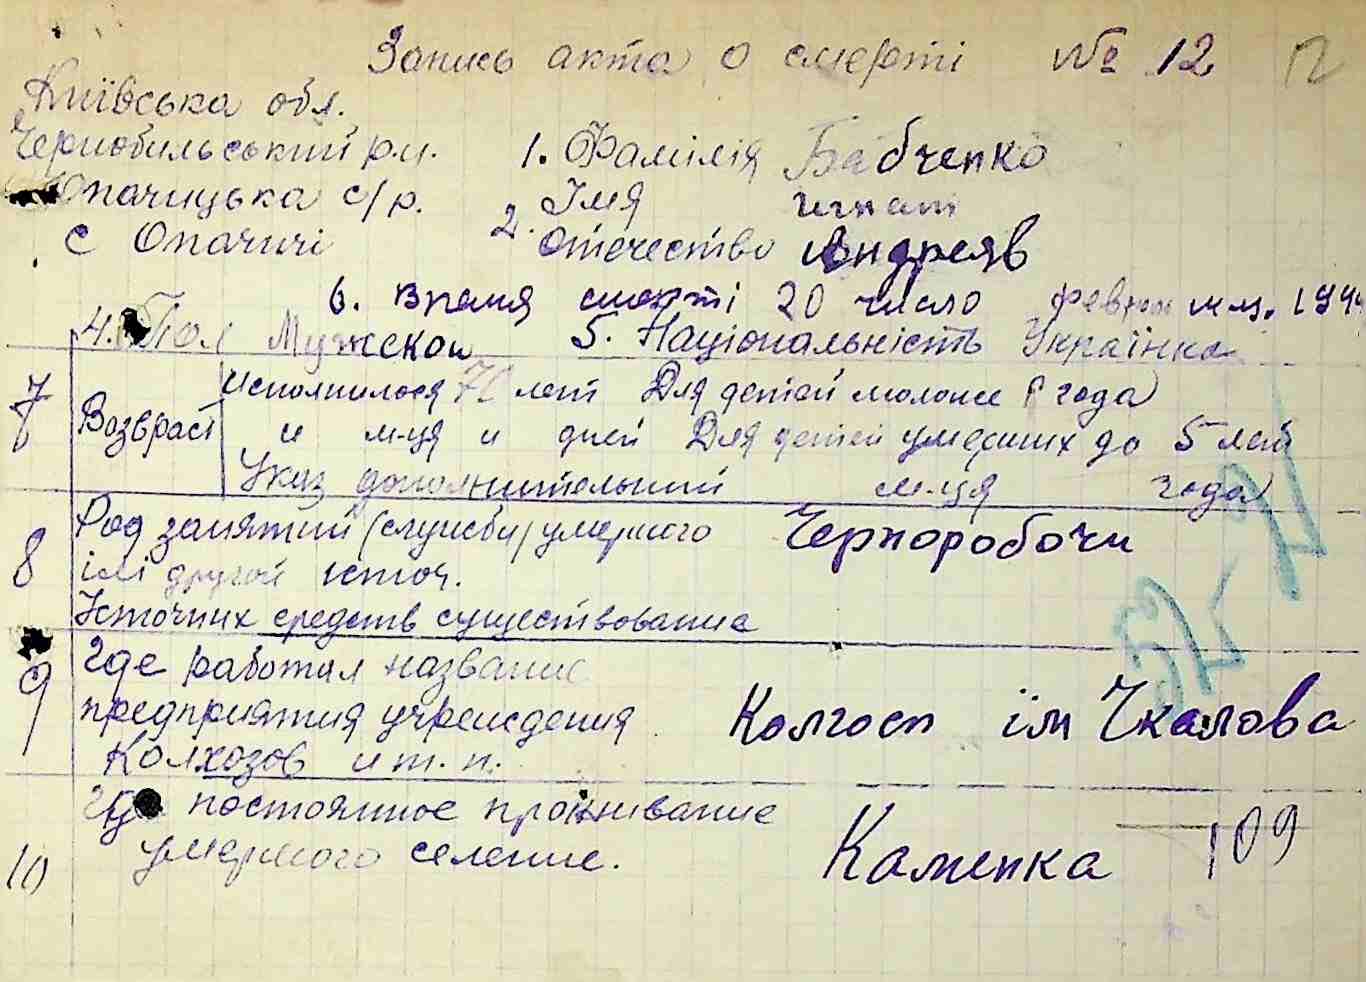 Запись акта о смерті № 12
Київська обл.
Чернобильський р.н. 1. Фамілія Бабченко
Опачицька с/р. 2. Імя Игнат
с Опачичі Отечество Андреяв
6. Время смерті 20 число феврал м-ц. 1944
4. Пол Мужской 5. Національність Українка
7 Возвраст Исполнилося 70 лет Для детей моложе 1 года
и м-ця и дней Для детей умерших до 5 лет
Указ дополнительний м-ця года
Род занятий (служби) умершого Черноробочи
8 ілі другой источ.
Источник средств существование
9 Где работал название
предприятия учреждения Колгосп ім Чкалова
Колхозов и т. п.
постоянное проживание
10 умершого селение. Каменка 109